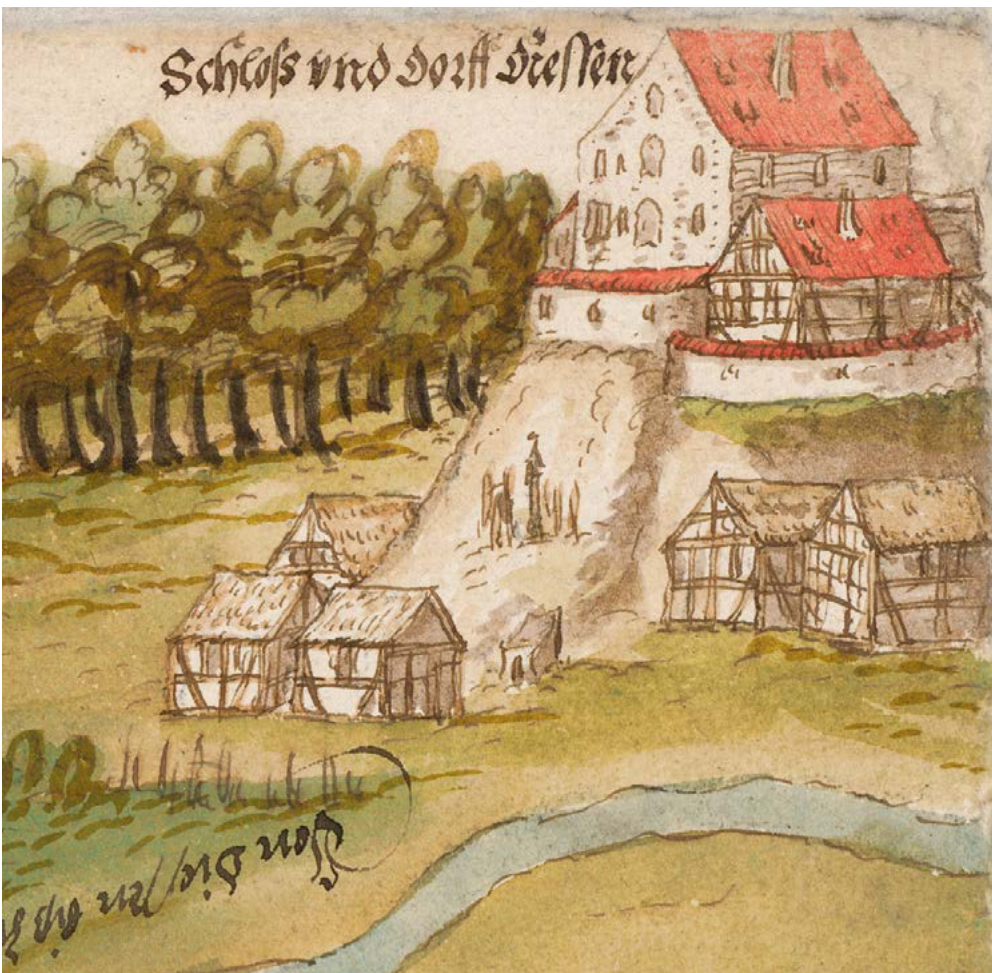 Schloſs vnd dorff Dieſſen
Von Dieſſen